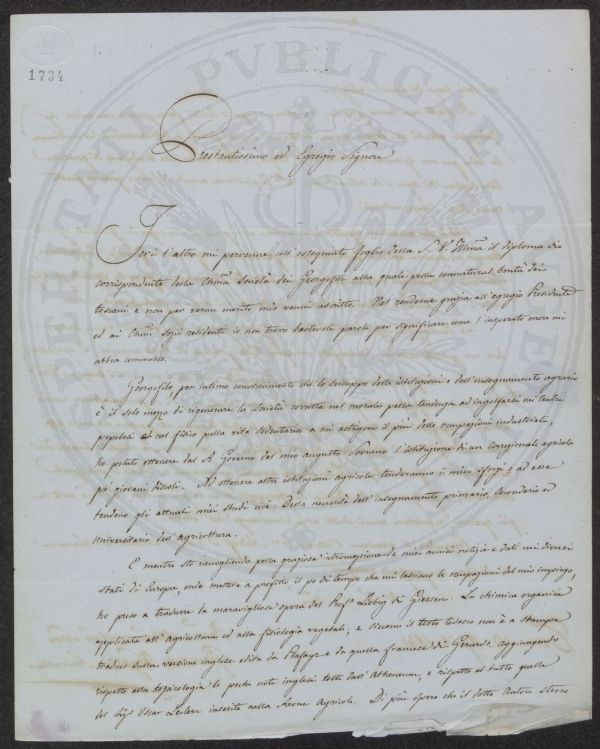 1734
PROSPERITATI PUBLICAE AUGENDAE
Prestantissimo ed Egregio Signore
Jeri l'altro mi pervenne coll'ossequiato foglio della S. V. Illma il diploma di
corrispondente della Chma Società dei Georgofili alla quale pella connatural bontà dei
toscani e non per verun merito mio venni ascritto. Nel renderne grazia all'egregio Presidente
ed ai Chmi Sigri residenti io non trovo bastevoli parole per significare come l'insperato onore mi
abbia commosso.
Georgofilo per intimo convincimento che lo sviluppo delle istituzioni e dell'insegnamento agrario
è il solo mezzo di rigenerare la Società corrotta nel morale pella tendenza ad ingolfarsi nei centri
popolosi ed nel fisico pella vita sedentaria a cui astringono il più delle occupazioni industriali,
ho potuto ottenere dal R. Governo del mio augusto Sovrano l'istituzione di un correzionale agricolo
pei giovani discoli. Ad ottenere altre istituzioni agricole tenderanno i miei sforzi e ad esse
tendono gli attuali miei studi cioè: Della necessità dell'insegnamento primario, Secondario ed
universitario dell'agricoltura.
E mentre sto raccogliendo pella graziosa intromissione de miei amici notizie e dati nei diversi
stati di Europa, onde mettere a profitto il po' di tempo che mi lasciano le occupazioni del mio impiego,
ho preso a tradurre la maravigliosa opera del Profr Liebig di Giessen: La chimica organica
applicata all'agricoltura ed alla fisiologia vegetale, e siccome il testo tedesco non è a stampa
traduco sulla versione inglese edita da Playfayr e da quella francese di Gerardt aggiungendo
rispetto alla tossicologia le poche note inglesi tolte dall'Atheneum, e rispetto al tutto quelle
del Sig. Oscar Leclerc inserite nella Revue Agricole. Di più spero che il dotto Autore stesso